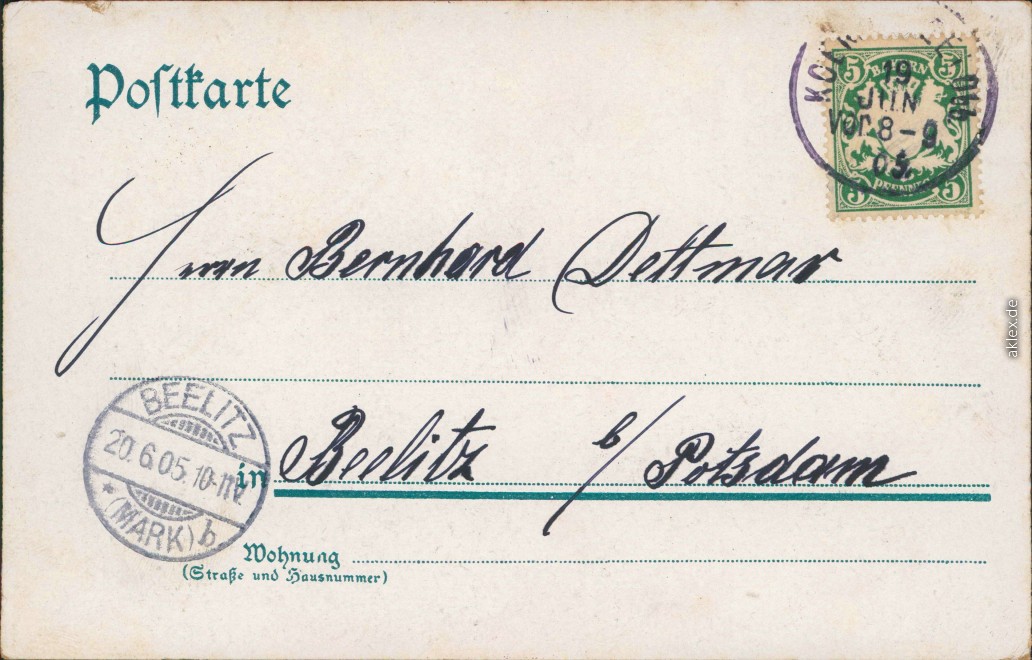 Postkarte
5 BAYERN 5
19
JUN
Vor. 8-9
05.
5 PFENNIG 5
Herrn Bernhard Dettmar
BEELITZ
20.6.05. 10-11V.
* (MARK) b
in Beelitz b/ Potsdam
Wohnung
(Straße und Hausnummer)
aklex.de